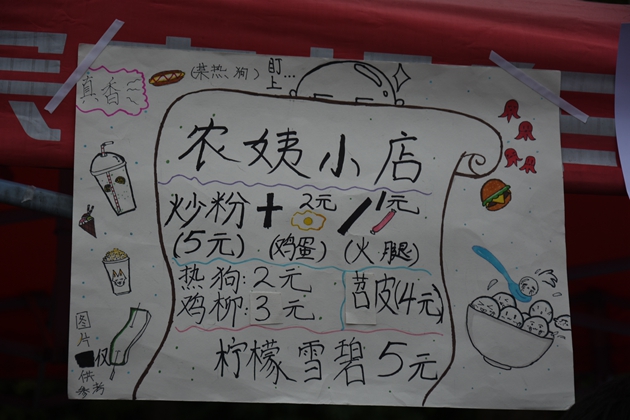 真香
(菜热狗)
盯上...
农姨小店
炒粉+ 2元/1元
(5元) (鸡蛋) (火腿)
热狗:2元
鸡柳:3元.
苕皮(4元)
柠檬雪碧5元
图片
仅
供
参考